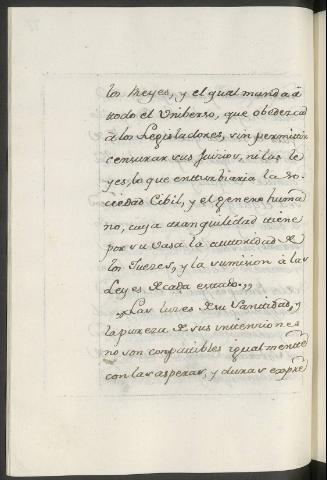 los Reyes, y el qual manda â
todo el Vniberso, que obedezca
â los Legisladores, sin permitir
censurar sus Juicios, ni las le
yes, lo que enturbiaria la So-
ciedad Cibil, y el genero huma
no, cuya tranquilidad tiene
por su vasa la autoridad de
los Jueces, y la sumision â las
Leyes de cada estado.,,
,,Las luces de su Santidad, y
la pureza de sus intenciones
no son conpatibles igualmente
con las asperas, y duras expre